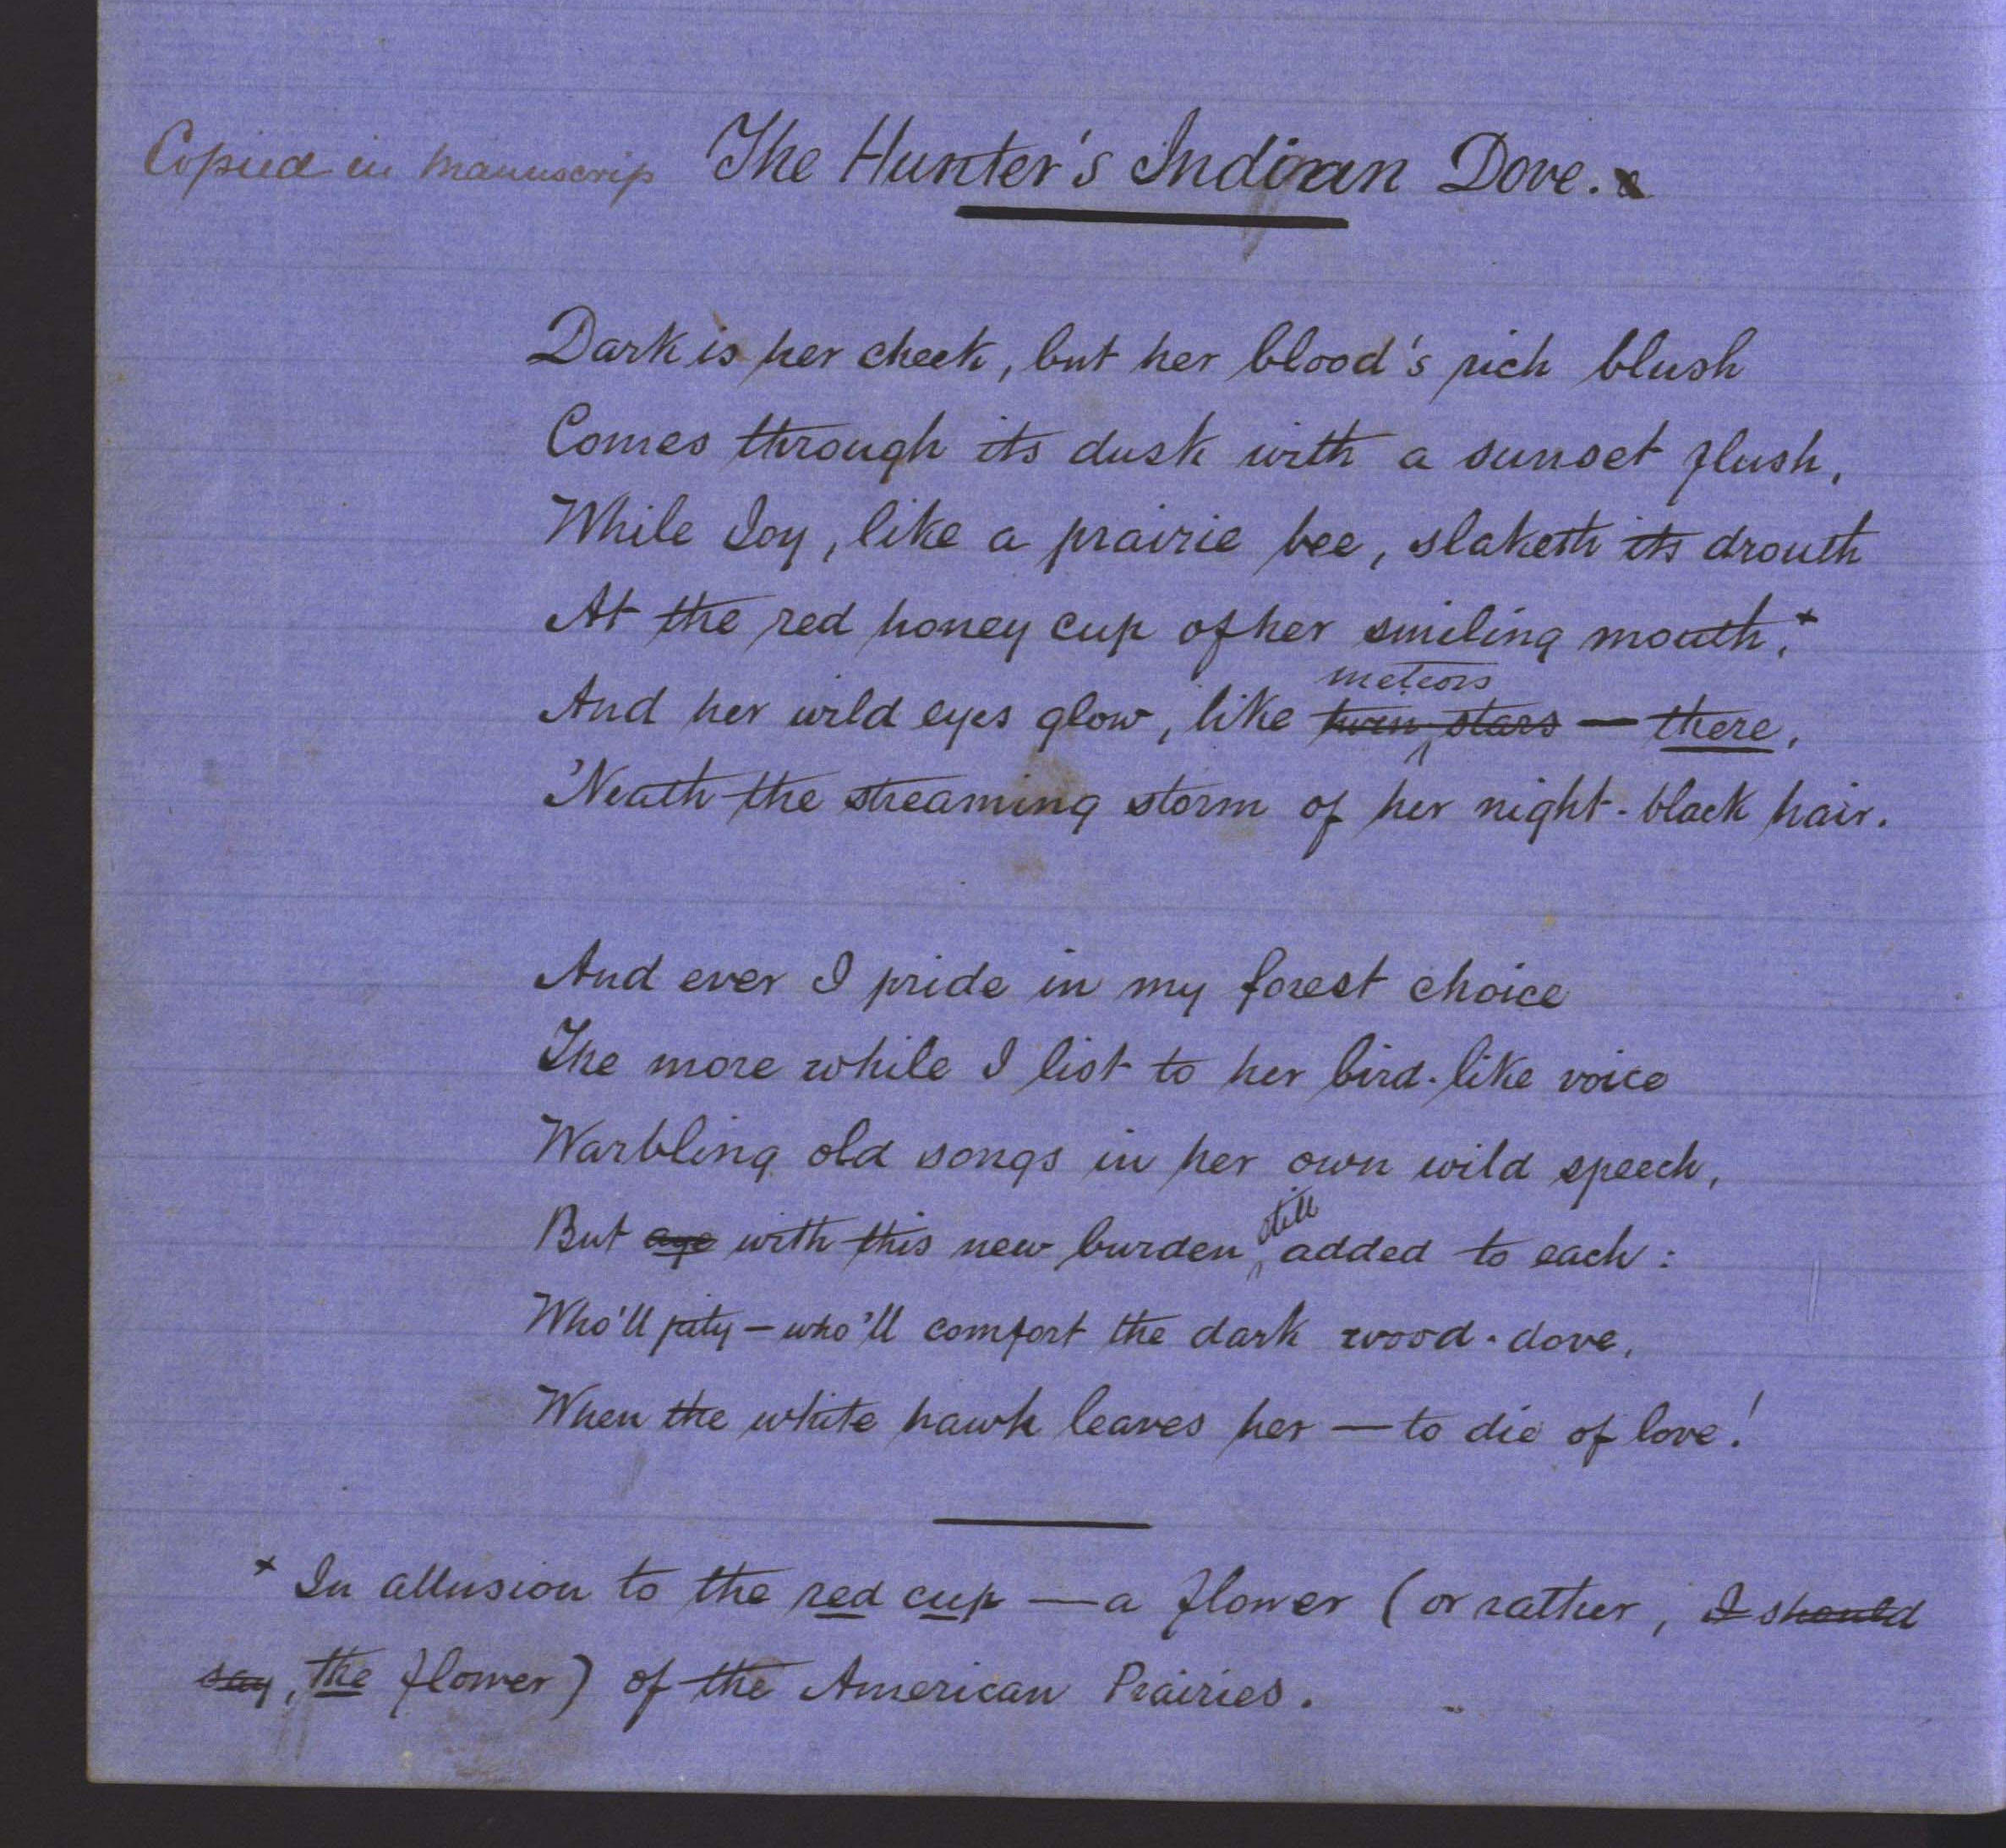 Copied in manuscrip The Hunter's Indian Dove.
Dark is her cheek, but her blood's rich blush
Comes through its dusk with a sunset flush,
While Joy, like a prairie bee, slaketh its drouth
At the red honey cup of her smiling mouth.+
meteors
And her wild eyes glow, like twin stars — there,
'Neath the streaming storm of her night-black hair.
And ever I pride in my forest choice
The more while I list to her bird-like voice
Warbling old songs in her own wild speech,
still
But aye with this new burden added to each:
Who'll pity — who'll comfort the dark wood-dove,
When the white hawk leaves her — to die of love!
+ In allusion to the red cup — a flower (or rather, I should
say, the flower) of the American Prairies.